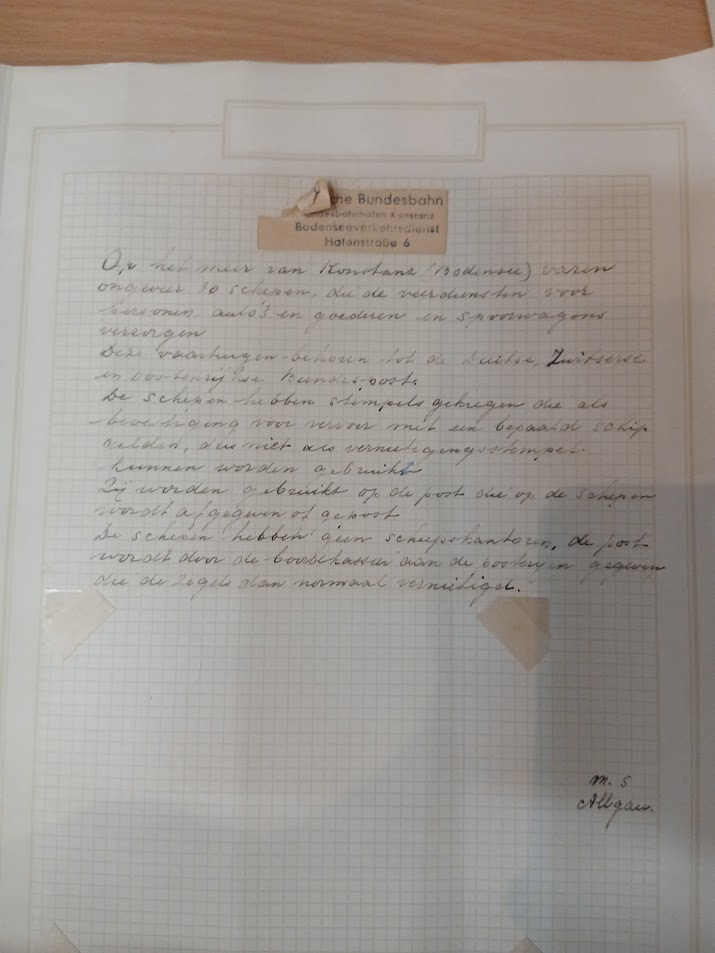 che Bundesbahn
ndesbahnhafen Konstanz
Bodenseeverkehrsdienst
Hafenstraße 6
Op het meer van Konstanz (Bodensee) varen
ongeveer 30 schepen, die de veerdiensten voor
personen, auto's en goederen en spoorwagons
verzorgen
Deze vaartuigen behoren tot de Duitse, Zwitserse
en Oostenrijkse Bundespost.
De schepen hebben stempels gekregen die als
bevestiging voor vervoer met een bepaald schip
gelden, dus niet als vernietigingsstempel
kunnen worden gebruikt
Zij worden gebruikt op de post die op de schepen
wordt afgegeven of gepost
De schepen hebben geen scheepskantoren, de post
wordt door de boordkassier aan de posterijen gegeven
die de zegels dan normaal vernietigd.
M. S
Allgau.